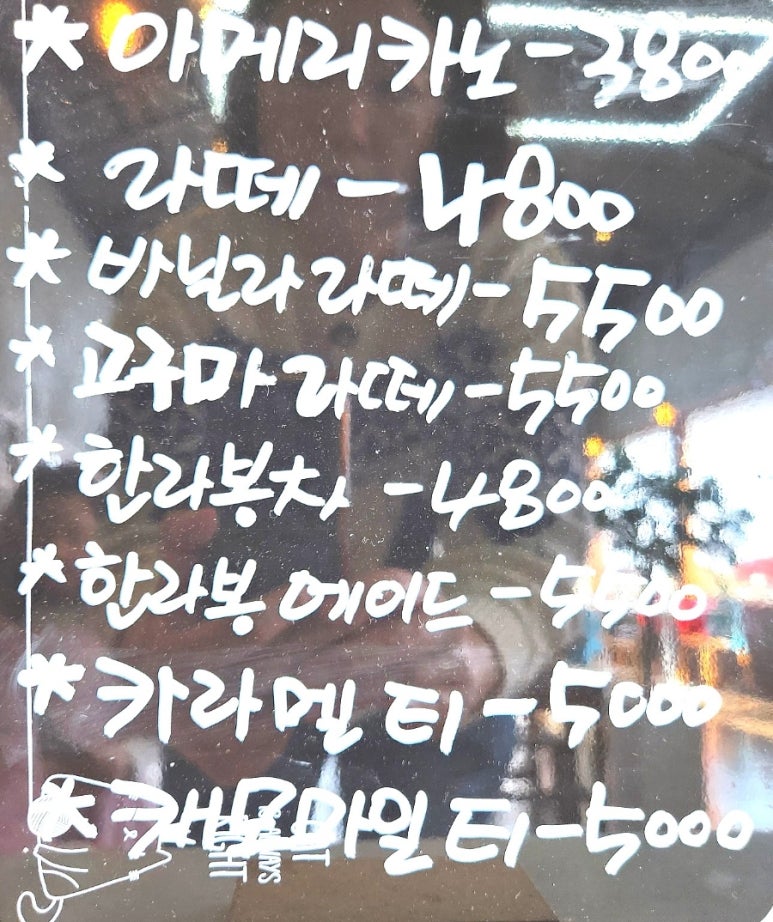 * 아메리카노 - 3800
* 라떼 - 4800
* 바닐라 라떼 - 5500
* 고구마 라떼 - 5500
* 한라봉차 - 4800
* 한라봉 에이드 - 5500
* 카라멜 티 - 5000
* 캐모마일 티 - 5000